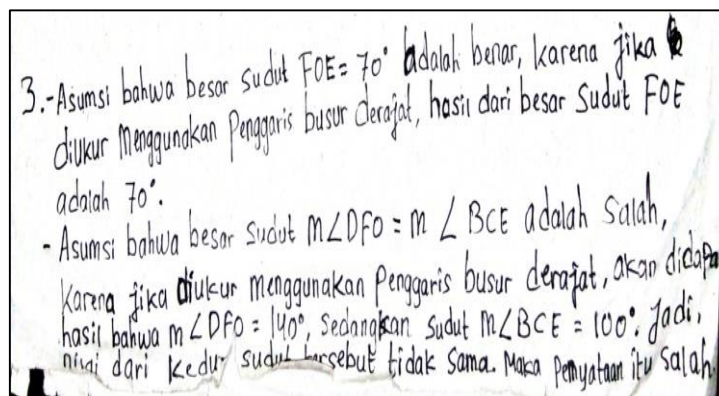 3.-Asumsi bahwa besar sudut FOE = 70° adalah benar, karena jika
diukur menggunakan Penggaris busur derajat, hasil dari besar Sudut FOE
adalah 70°.
- Asumsi bahwa besar sudut m∠DFO = m∠BCE adalah salah,
Karena jika diukur menggunakan Penggaris busur derajat, akan didapa
hasil bahwa m∠DFO = 140°, Sedangkan Sudut m∠BCE = 100°. Jadi,
nilai dari kedua sudut tersebut tidak sama. Maka Pernyataan itu Salah.